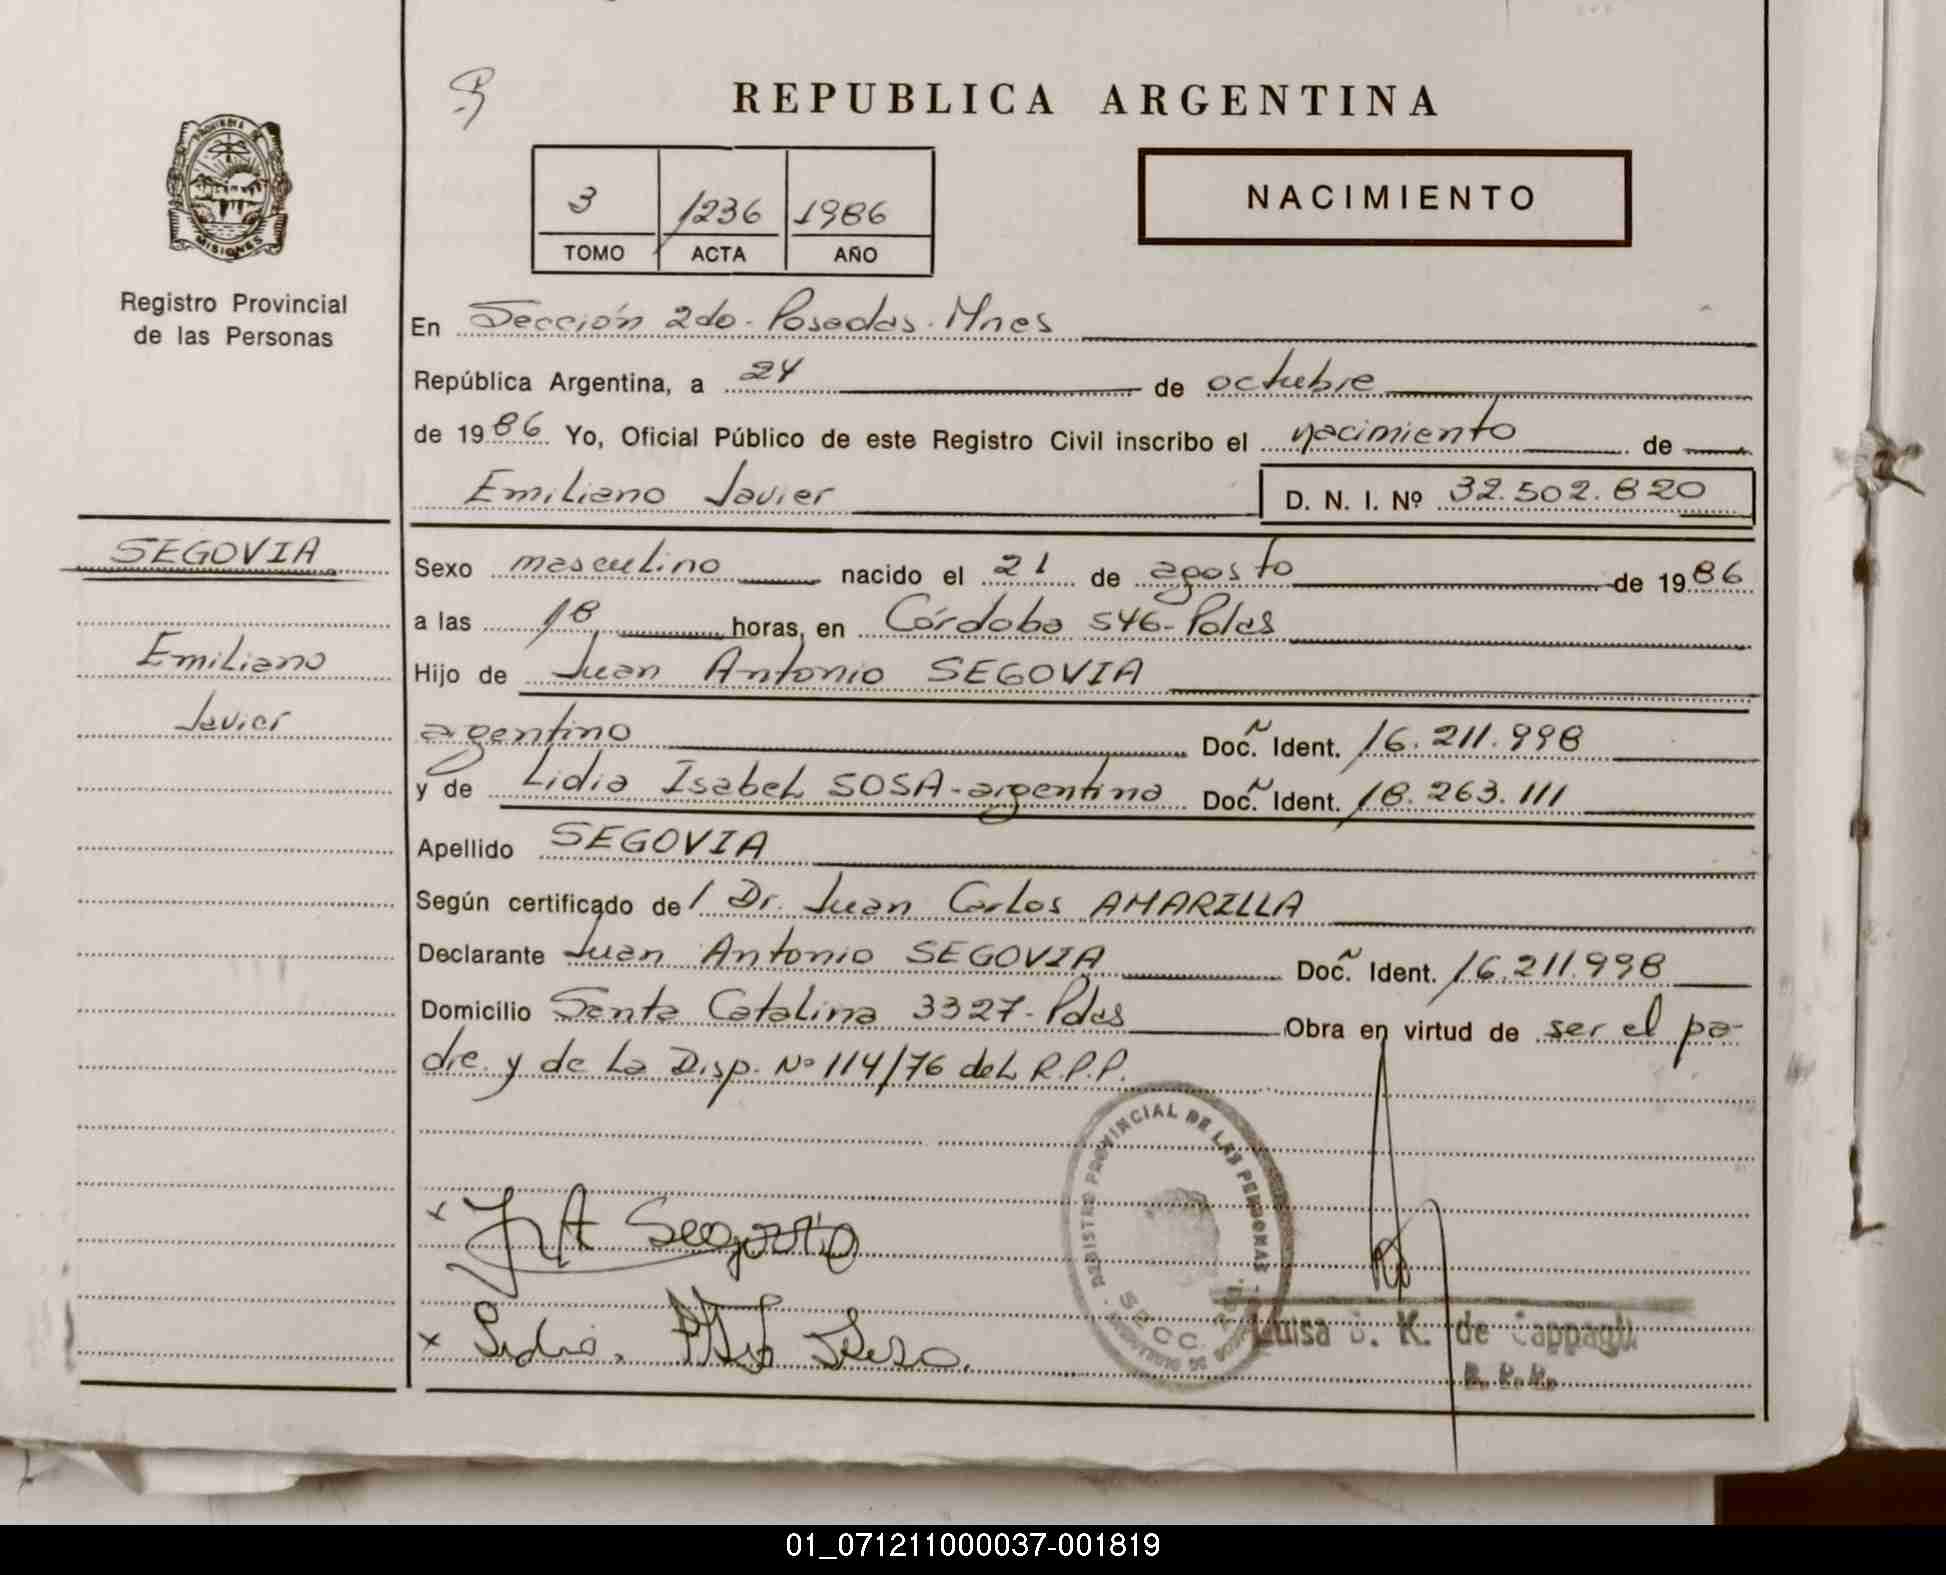 REPUBLICA ARGENTINA
PROVINCIA DE
MISIONES
Registro Provincial
de las Personas
3 1236 1986
TOMO ACTA AÑO
NACIMIENTO
En Sección 2da. Posadas. Mnes
República Argentina, a 24 de octubre
de 1986 Yo, Oficial Público de este Registro Civil inscribo el nacimiento de
Emiliano Javier D. N. I. Nº 32.502.820
SEGOVIA
Emiliano
Javier
Sexo masculino nacido el 21 de agosto de 1986
a las 18 horas, en Córdoba 546-Pdas
Hijo de Juan Antonio SEGOVIA
argentino Doc. Ident. 16.211.998
y de Lidia Isabel SOSA-argentina Doc. Ident. 18.263.111
Apellido SEGOVIA
Según certificado de/ Dr. Juan Carlos AMARILLA
Declarante Juan Antonio SEGOVIA Doc. Ident. 16.211.998
Domicilio Santa Catalina 3327-Pdas Obra en virtud de ser el pa-
dre y de la Disp. Nº 114/76 del R.P.P.
REGISTRO PROVINCIAL DE LAS PERSONAS
x J A Segovia
x Lidia Sosa
Luisa K. de Cappagli
01_071211000037-001819